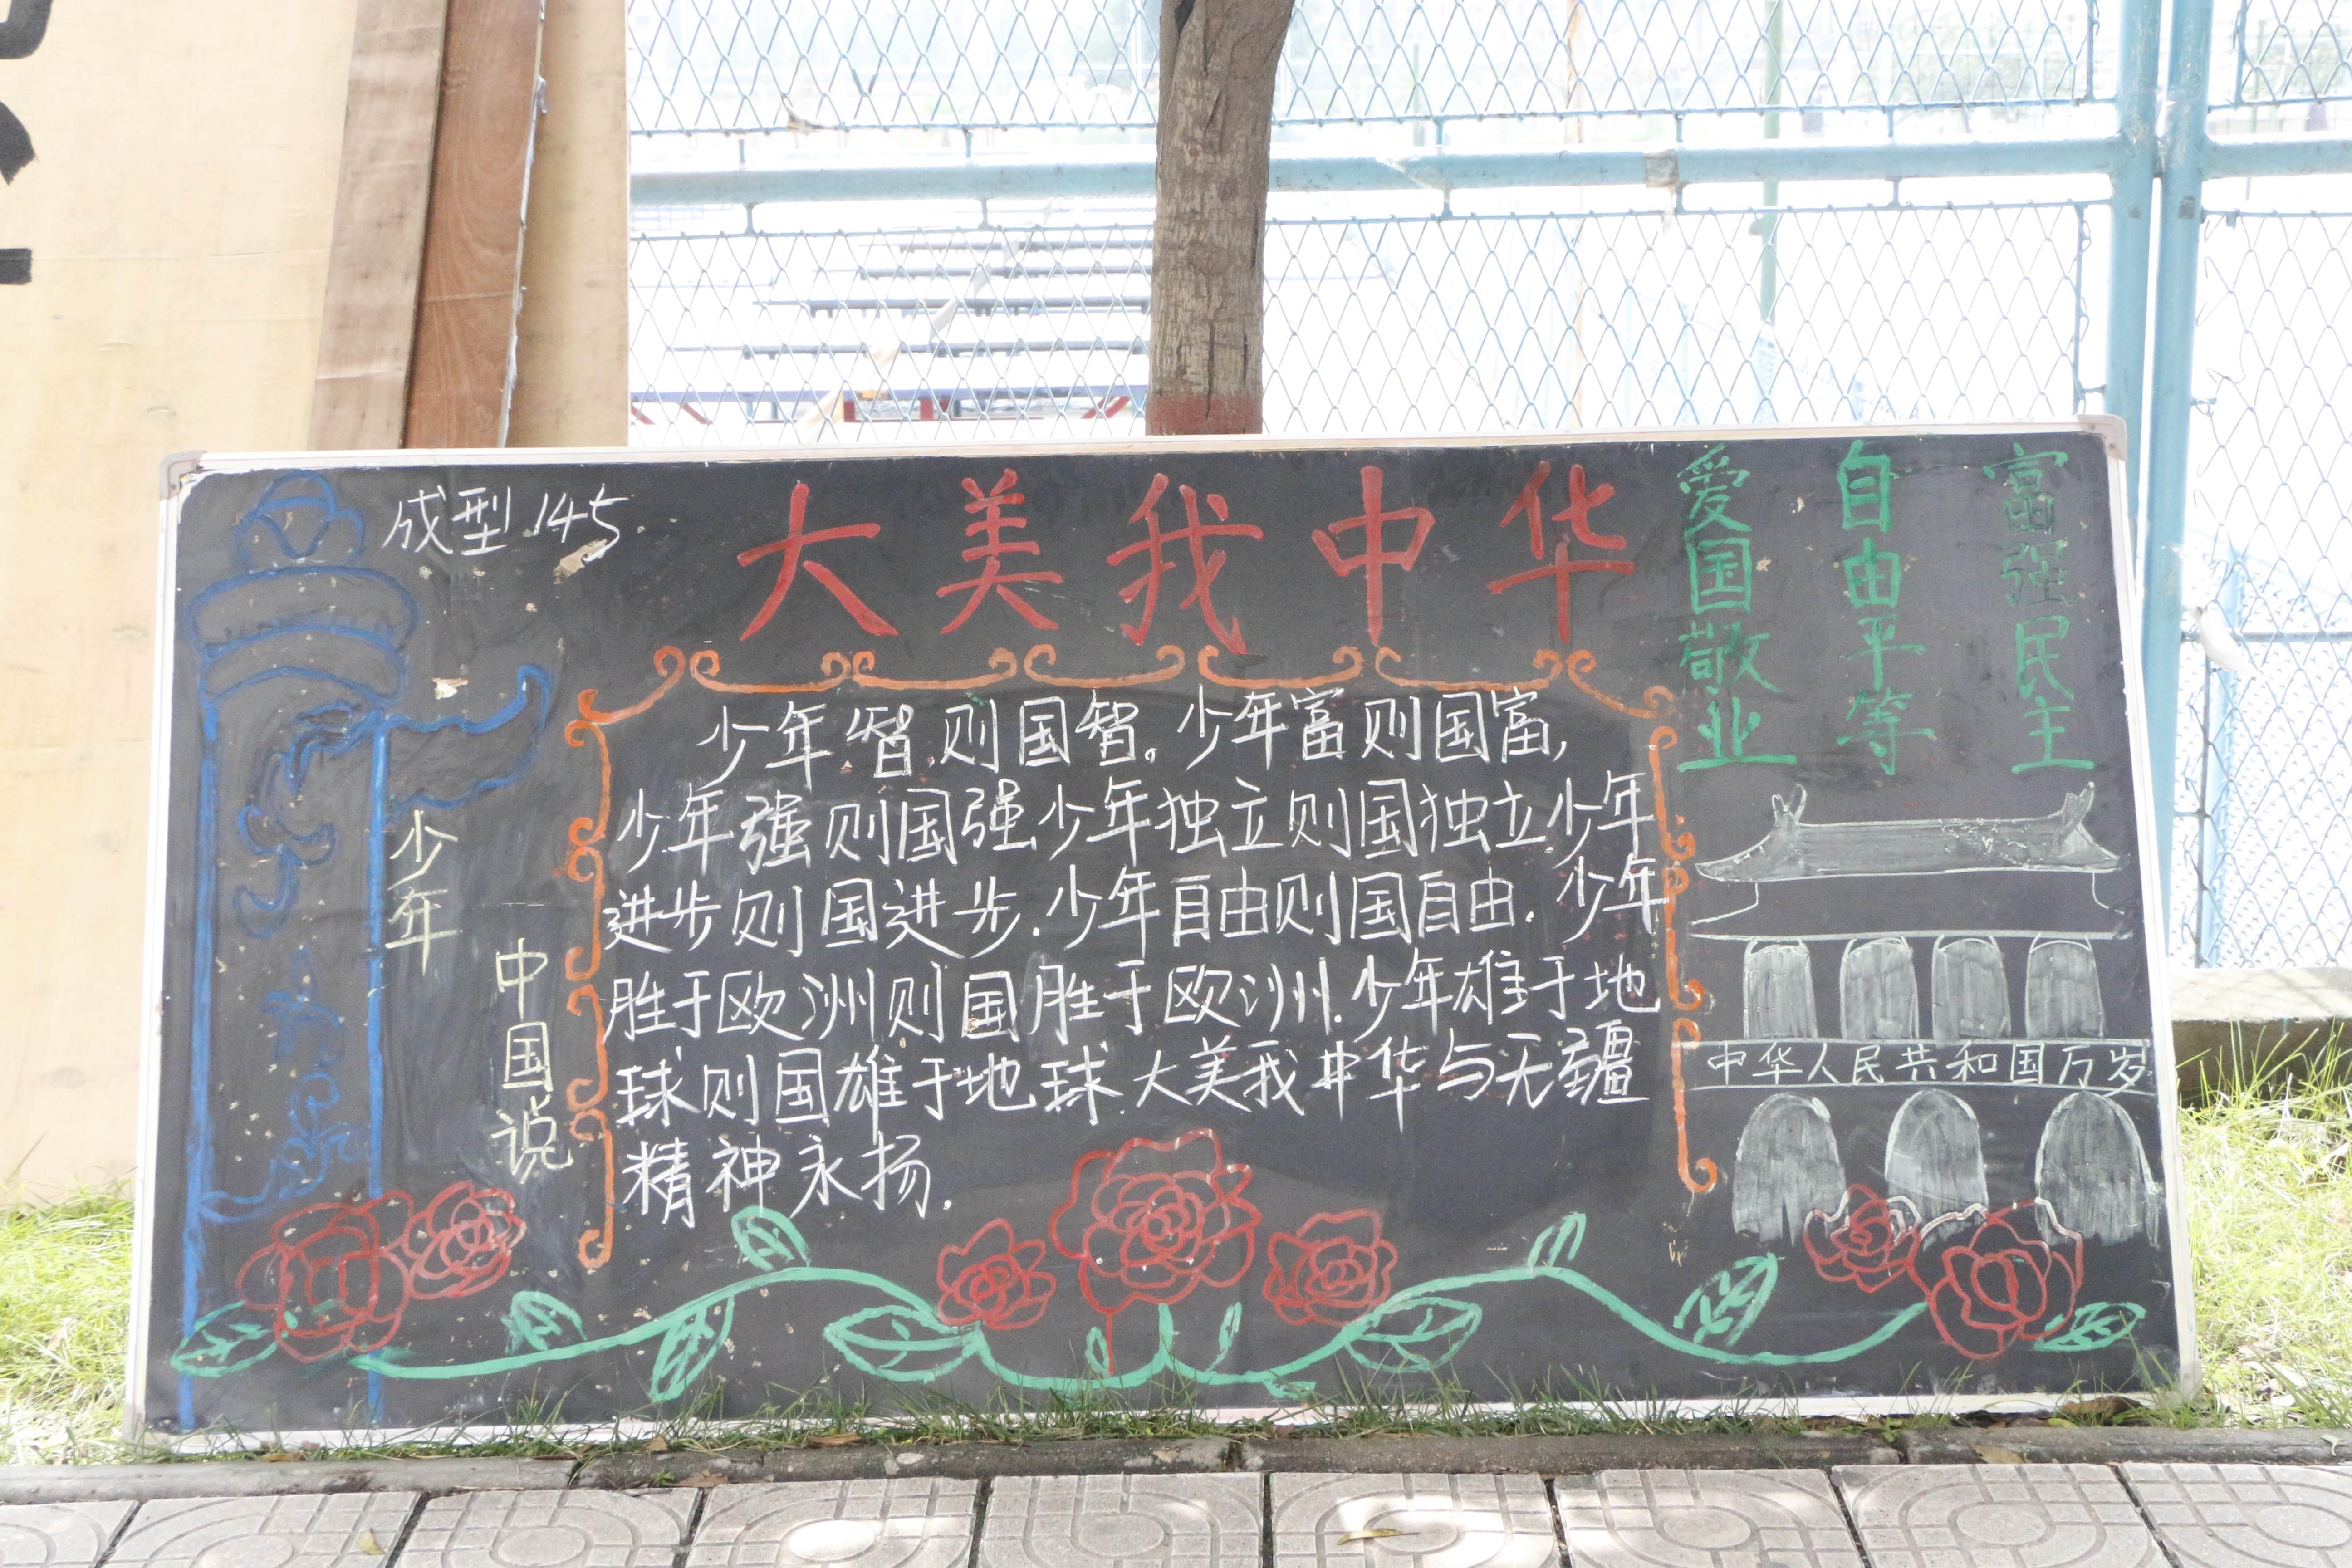 成型145
大美我中华
爱国敬业
自由平等
富强民主
少年
中国说
少年智则国智。少年富则国富,
少年强则国强.少年独立则国独立.少年
进步则国进步.少年自由则国自由.少年
胜于欧洲则国胜于欧洲.少年雄于地
球则国雄于地球.大美我中华与无疆
精神永扬.
中华人民共和国万岁